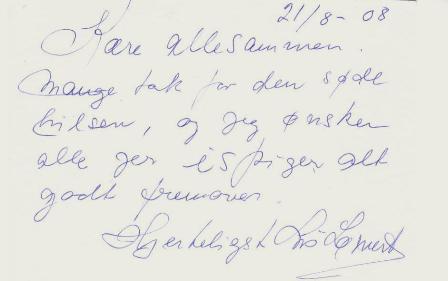 21/8-08
Kære allesammen.
Mange tak for den søde
hilsen, og jeg ønsker
alle jer ispiger alt
godt fremover.
Hjerteligst